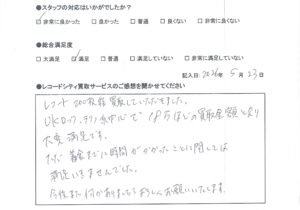 ●スタッフの対応はいかがでしたか？
□非常に良かった □良かった □普通 □良くない □非常に良くない
●総合満足度
□大満足 □満足 □普通 □満足していない □非常に満足していない
記入日: 2024年 5月 23日
●レコードシティ買取サービスのご感想を聞かせてください
レコード 200枚弱 買取していただきました。
UKロック、テクノ系中心で 18万ほどの買取金額となり
大変 満足です。
ただ 着金までに時間がかかったことに関しては
満足いきませんでした。
今後また何かありましたらよろしくお願いいたします。